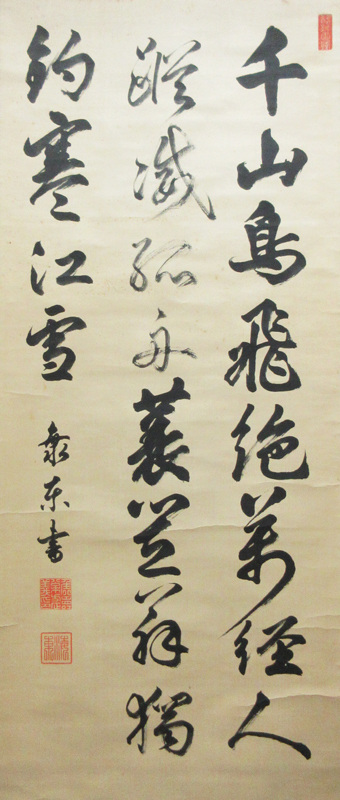 千山鳥飛絶萬経人
蹤滅孤舟蓑笠翁獨
釣寒江雪
東書